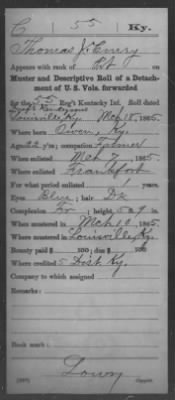 C 55 Ky.
Thomas J. Emery
Appears with rank of Pvt on
Muster and Descriptive Roll of a Detach-
ment of U. S. Vols. forwarded
for the 55 Reg't Kentucky Inf. Roll dated
Louisville Ky Mch 18, 1865.
Where born Owen, Ky.
Age 22 y'rs; occupation Farmer
When enlisted Mch 7, 1865.
Where enlisted Frankfort
For what period enlisted 1 years.
Eyes Blue; hair Dk
Complexion Fr; height 5 ft. 9 in.
When mustered in Mch 10, 1865.
Where mustered in Louisville, Ky.
Bounty paid $ 100; due $ 100
Where credited 5 Dist. Ky.
Company to which assigned
Remarks:
Book mark:
Lowry
Copyist.